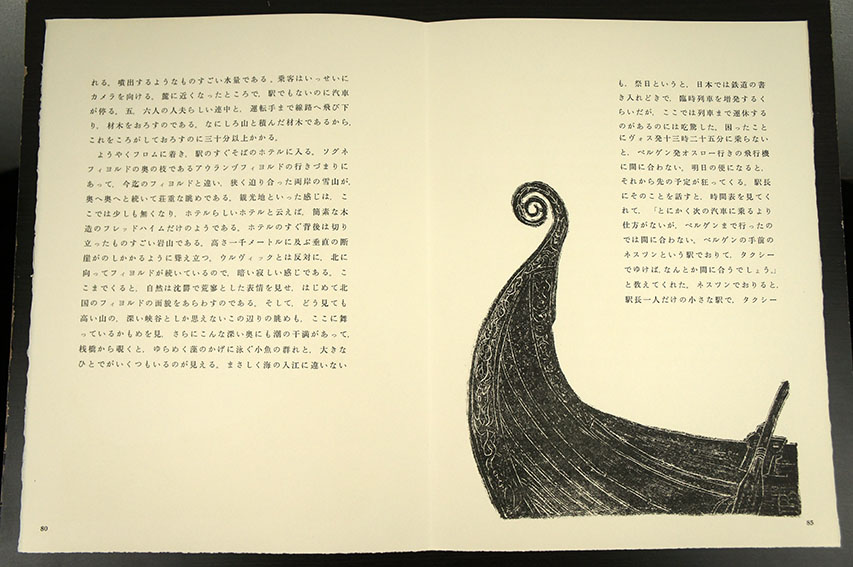 れる。噴出するようなものすごい水量である。乗客はいっせいに
カメラを向ける。麓に近くなったところで、駅でもないのに汽車
が停る。五、六人の人夫らしい連中と、運転手まで線路へ飛び下
り、材木をおろすのである。なにしろ山と積んだ材木であるから、
これをころがしておろすのに三十分以上かかる。
ようやくフロムに着き、駅のすぐそばのホテルに入る。ソグネ
フィヨルドの奥の枝であるアウランヴフィヨルドの行きづまりに
あって、今迄のフィヨルドと違い、狭く迫り合った両岸の雪山が、
奥へ奥へと続いて荘重な眺めである。観光地といった感じは、こ
こでは少しも無くなり、ホテルらしいホテルと云えば、簡素な木
造のフレッドハイムだけのようである。ホテルのすぐ背後は切り
立ったものすごい岩山である。高さ一千メートルに及ぶ垂直の断
崖がのしかかるように聳え立つ。ウルヴィックとは反対に、北に
向ってフィヨルドが続いているので、暗い寂しい感じである。こ
こまでくると、自然は沈鬱で荒寥とした表情を見せ、はじめて北
国のフィヨルドの面貌をあらわすのである。そして、どう見ても
高い山の、深い峡谷としか思えないこの辺りの眺めも、ここに舞
っているかもめを見、さらにこんな深い奥にも潮の干満があって、
桟橋から覗くと、ゆらめく藻のかげに泳ぐ小魚の群れと、大きな
ひとでがいくつもいるのが見える。まさしく海の入江に違いない
80
も、祭日というと、日本では鉄道の書
き入れどきで、臨時列車を増発するく
らいだが、ここでは列車まで運休する
のがあるのには吃驚した。困ったこと
にヴォス発十三時二十五分に乗らない
と、ベルゲン発オスロー行きの飛行機
に間に合わない。明日の便になると、
それから先の予定が狂ってくる。駅長
にそのことを話すと、時間表を見てく
れて、「とにかく次の汽車に乗るより
仕方がないが、ベルゲンまで行ったの
では間に合わない。ベルゲンの手前の
ネスツンという駅でおりて、タクシー
でゆけば、なんとか間に合うでしょう。」
と教えてくれた。ネスツンでおりると、
駅長一人だけの小さな駅で、タクシー
85